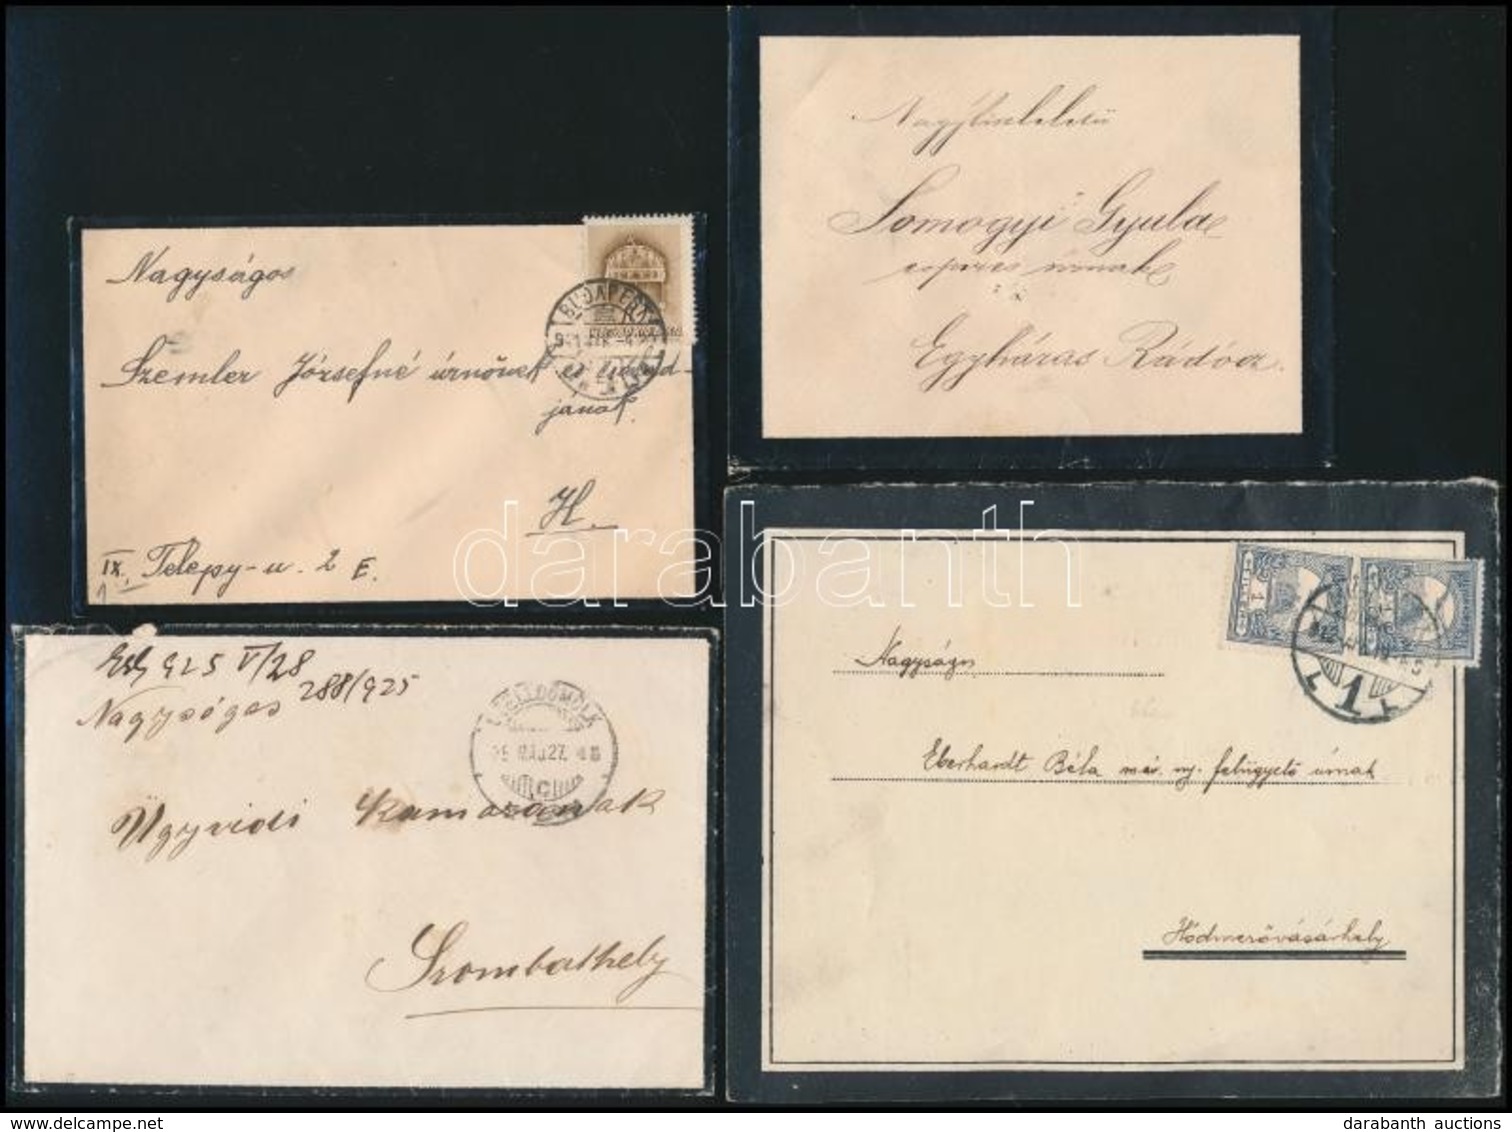 Nagyságos
Szemler Józsefné úrnőnek és család-
jának.
H.
IX. Telepy-u. 2 E.
BUDAPEST
Somogyi Gyula
esperes úrnak
Egyházas Rádócz
925 V/28
288/925
Nagyságos
Ügyvédi Kamarának
Szombathely
CELLDÖMÖLK
Nagyságos
Eberhardt Béla ny. felügyelő úrnak
Hódmezővásárhely
1
darabanth
darabanth auctions